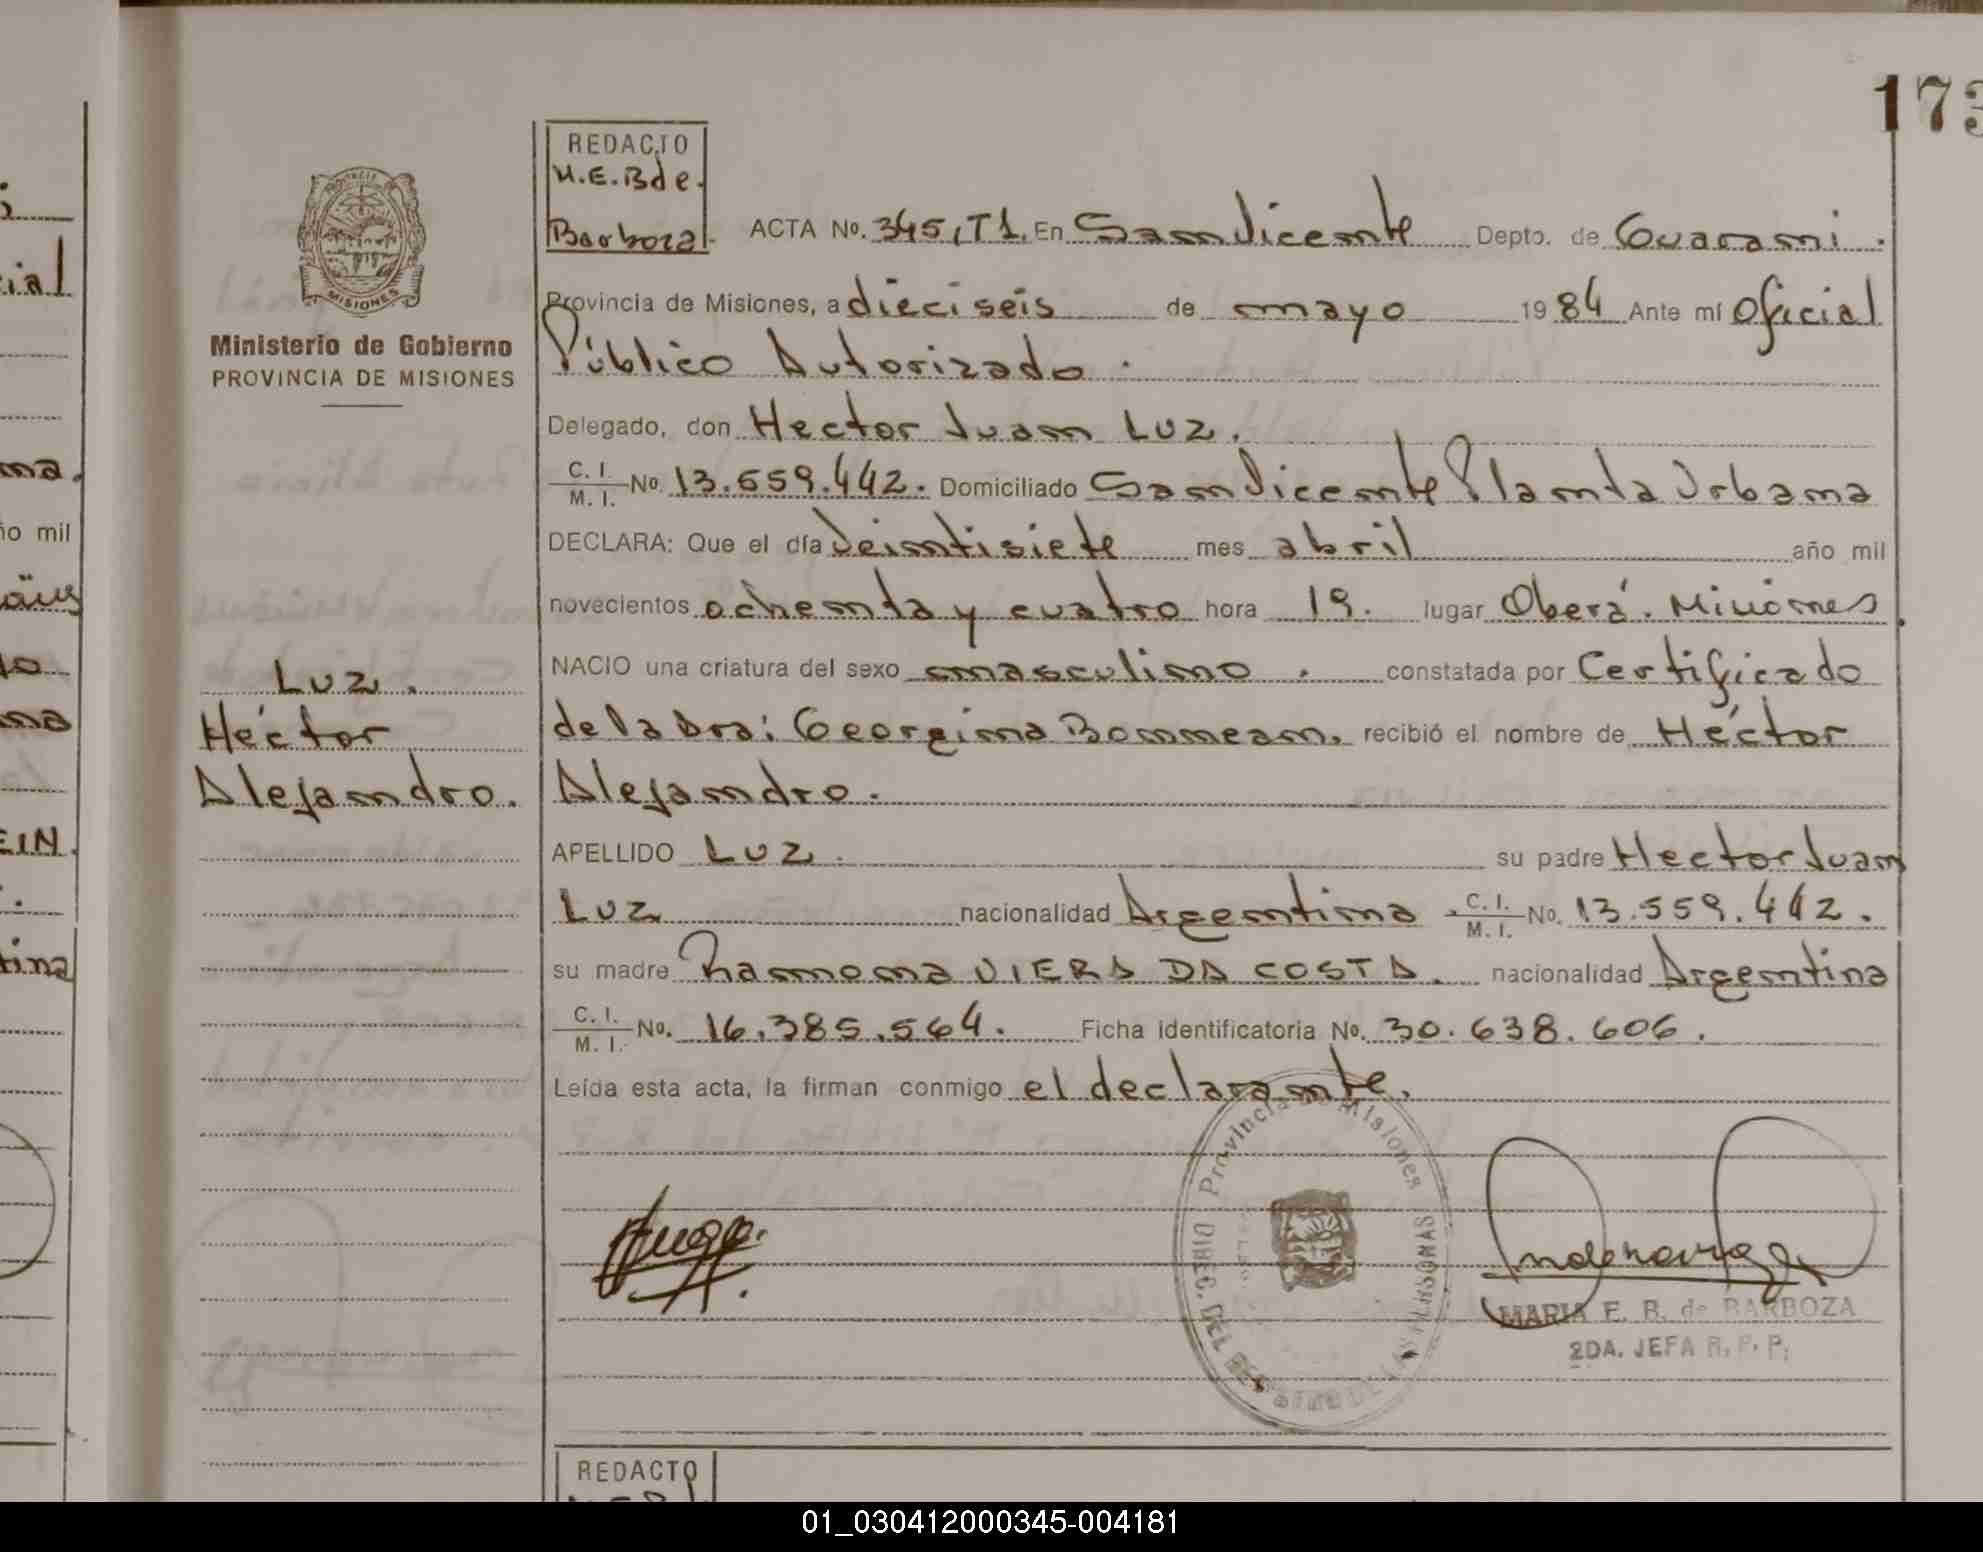 173
REDACTO
M.E.B de.
Barboza.
ACTA No. 345, T1. En San Vicente Depto. de Guarani.
PROVINCIA
MISIONES
Provincia de Misiones, a dieciseis de mayo 1984 Ante mí Oficial
Ministerio de Gobierno
PROVINCIA DE MISIONES
Público Autorizado.
Delegado, don Hector Juan Luz.
C. I.
M. I. No. 13.559.442. Domiciliado San Vicente Planta Urbana
DECLARA: Que el día Veintisiete mes abril año mil
novecientos ochenta y cuatro hora 19. lugar Oberá. Misiones
NACIO una criatura del sexo masculino. constatada por Certificado
de la Dra: Georgina Bonnean. recibió el nombre de Héctor
Alejandro.
Luz.
Héctor
Alejandro.
APELLIDO Luz. su padre Hector Juan
Luz nacionalidad Argentina. C. I.
M. I. No. 13.559.442.
su madre Ramona VIERA DA COSTA. nacionalidad Argentina
C. I.
M. I. No. 16.385.564. Ficha identificatoria No. 30.638.606.
Leída esta acta, la firman conmigo el declarante.
Provincia de Misiones
MARIA E. B. de BARBOZA
2DA. JEFA R. P. P.
REDACTO
ial
ma.
ño mil
EIN.
tina
01_030412000345-004181